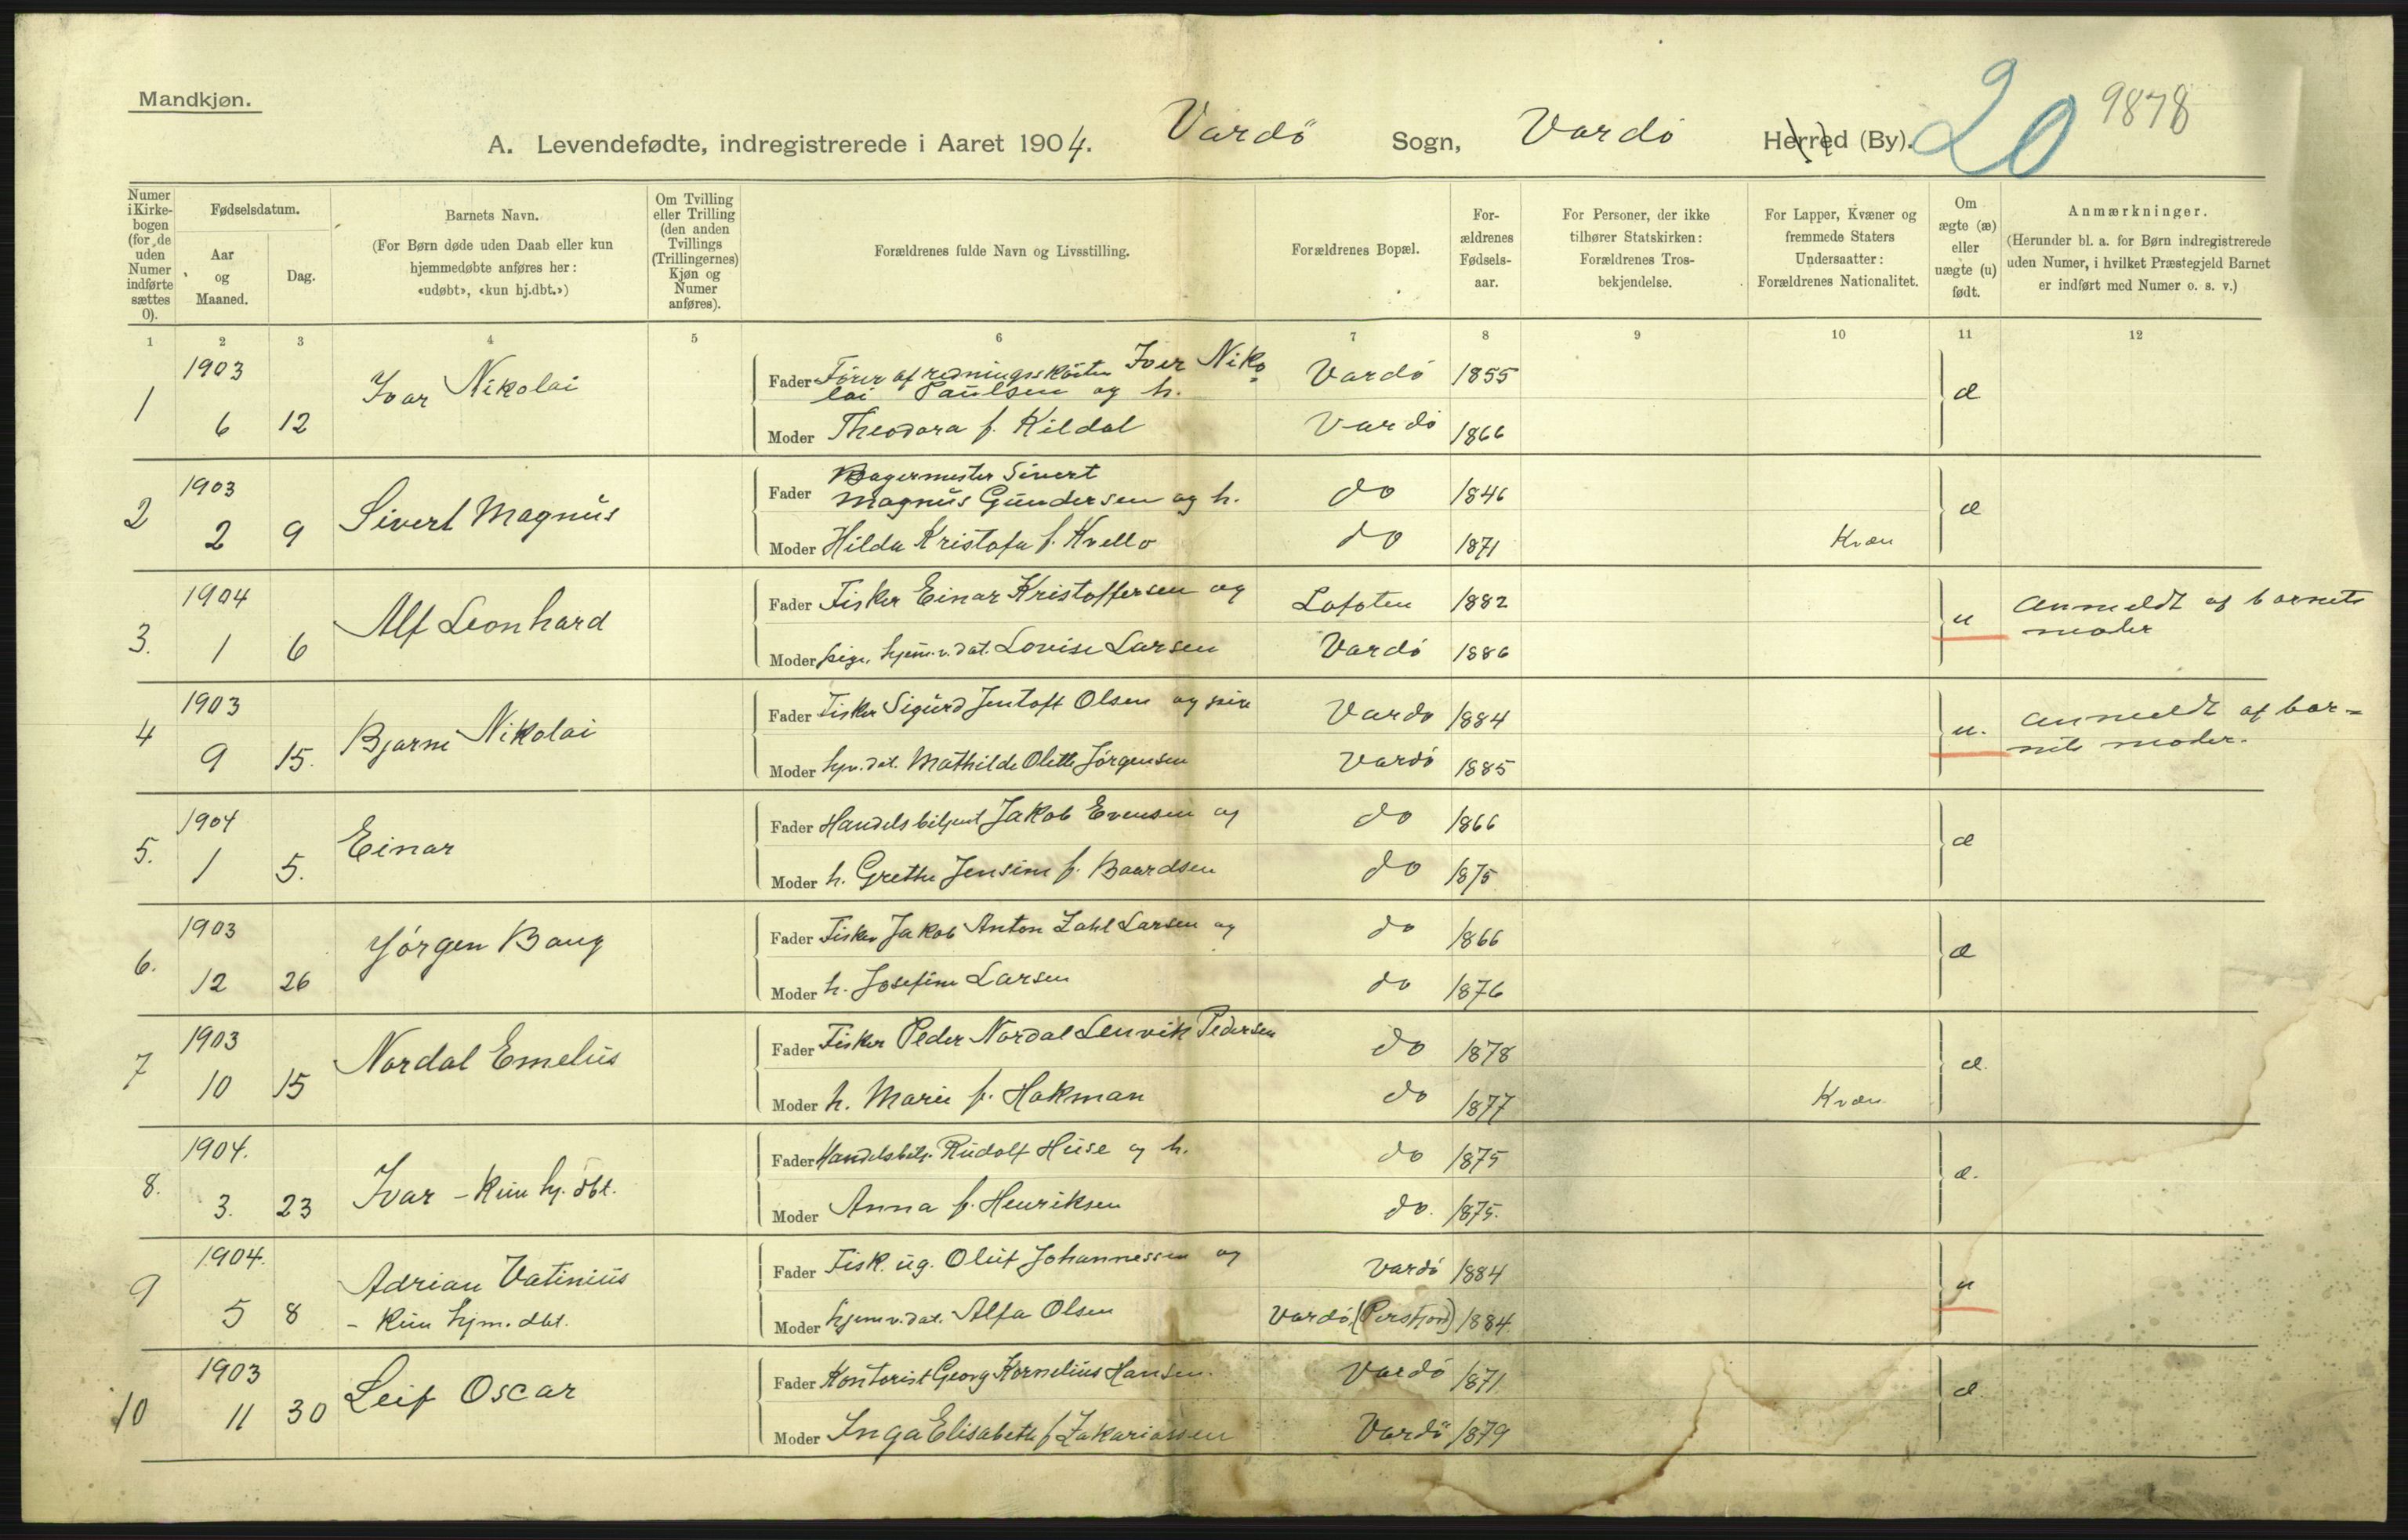 Mandkjøn.
20 9878
A. Levendefødte, indregistrerede i Aaret 1904. Vardö Sogn, Vardö Herred (By).
Numer i Kirke-bogen (for de uden Numer indførte sættes 0).
Fødselsdatum.
Aar og Maaned.
Dag.
Barnets Navn.
(For Børn døde uden Daab eller kun hjemmedøbte anføres her: «udøbt», «kun hj.dbt.»)
Om Tvilling eller Trilling (den anden Tvillings (Trillingernes) Kjøn og Numer anføres).
Forældrenes fulde Navn og Livsstilling.
Forældrenes Bopæl.
For-ældrenes Fødsels-aar.
For Personer, der ikke tilhører Statskirken: Forældrenes Tros-bekjendelse.
For Lapper, Kvæner og fremmede Staters Undersaatter: Forældrenes Nationalitet.
Om ægte (æ) eller uægte (u) født.
Anmærkninger.
(Herunder bl. a. for Børn indregistrerede uden Numer, i hvilket Præstegjeld Barnet er indført med Numer o. s. v.)
1 2 3 4 5 6 7 8 9 10 11 12
1 1903 6 12 Ivar Nikolai
Fader Fører af redningsskøiten Iver Niko=
lai Paulsen og h. Vardö 1855 æ
Moder Theodora f. Kildal Vardö 1866
2 1903 2 9 Sivert Magnus
Fader Bagermester Sivert
Magnus Gundersen og h. do 1846 æ
Moder Hilda Kristofa f. Kvello do 1871 Kvæn
3. 1904 1 6 Alf Leonhard
Fader Fisker Einar Kristoffersen og Lofoten 1882 u Anmeldt af barnets
moder
Moder pige, hjem.v.dat. Lovise Larsen Vardö 1886
4 1903 9 15. Bjarne Nikolai
Fader Fisker Sigurd Jentoft Olsen og pike Vardö 1884 u. Anmeldt af bar=
nets moder.
Moder hjv.dat. Mathilde Olette Jörgensen Vardö 1885
5. 1904 1 5. Einar
Fader Handelsbetjent Jakob Evensen og do 1866 æ
Moder h. Grethe Jensine f. Baardsen do 1875
6. 1903 12 26 Jörgen Baug
Fader Fisker Jakob Anton Zahl Larsen og do 1866 æ
Moder h. Josefine Larsen do 1876
7 1903 10 15 Nordal Emelius
Fader Fisker Peder Nordal Lenvik Pedersen do 1878 æ.
Moder h. Marie f. Hakman do 1877 Kvæn
8. 1904. 3. 23 Ivar - kun hj. dbt.
Fader Handelsbetj. Rudolf Huse og h. do 1875 æ.
Moder Anna f. Henriksen do. 1875.
9 1904. 5 8 Adrian Vatinius
- kun hjm. dbt.
Fader Fisk. ug. Oluf Johannessen og Vardö 1884 u
Moder hjemv.dat. Alfa Olsen Vardö (Persfjord) 1884
10 1903 11 30 Leif Oscar
Fader Kontorist Georg Kornelius Hansen. Vardö 1871 æ
Moder Inga Elisabeth f Zakariassen Vardö 1879